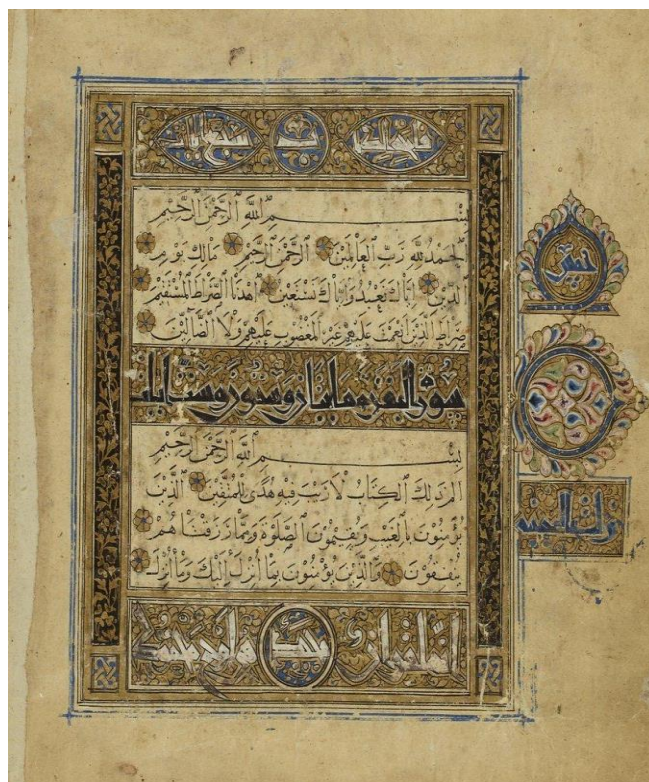 سبع ايات
بِسْمِ ٱللَّهِ ٱلرَّحْمَٰنِ ٱلرَّحِيمِ
ٱلْحَمْدُ لِلَّهِ رَبِّ ٱلْعَالَمِينَ ٱلرَّحْمَٰنِ ٱلرَّحِيمِ مَالِكِ يَوْمِ
ٱلدِّينِ إِيَّاكَ نَعْبُدُ وَإِيَّاكَ نَسْتَعِينُ ٱهْدِنَا ٱلصِّرَاطَ ٱلْمُسْتَقِيمَ
صِرَاطَ ٱلَّذِينَ أَنْعَمْتَ عَلَيْهِمْ غَيْرِ ٱلْمَغْضُوبِ عَلَيْهِمْ وَلَا ٱلضَّالِّينَ
سورة البقرة مايتان وثمنون وست ايات
بِسْمِ ٱللَّهِ ٱلرَّحْمَٰنِ ٱلرَّحِيمِ
الم ذَلِكَ ٱلْكِتَابُ لَا رَيْبَ فِيهِ هُدًى لِلْمُتَّقِينَ ٱلَّذِينَ
يُؤْمِنُونَ بِٱلْغَيْبِ وَيُقِيمُونَ ٱلصَّلَوٰةَ وَمِمَّا رَزَقْنَاهُمْ
يُنْفِقُونَ وَٱلَّذِينَ يُؤْمِنُونَ بِمَا أُنْزِلَ إِلَيْكَ وَمَا أُنْزِلَ
نزلت بالمدينة